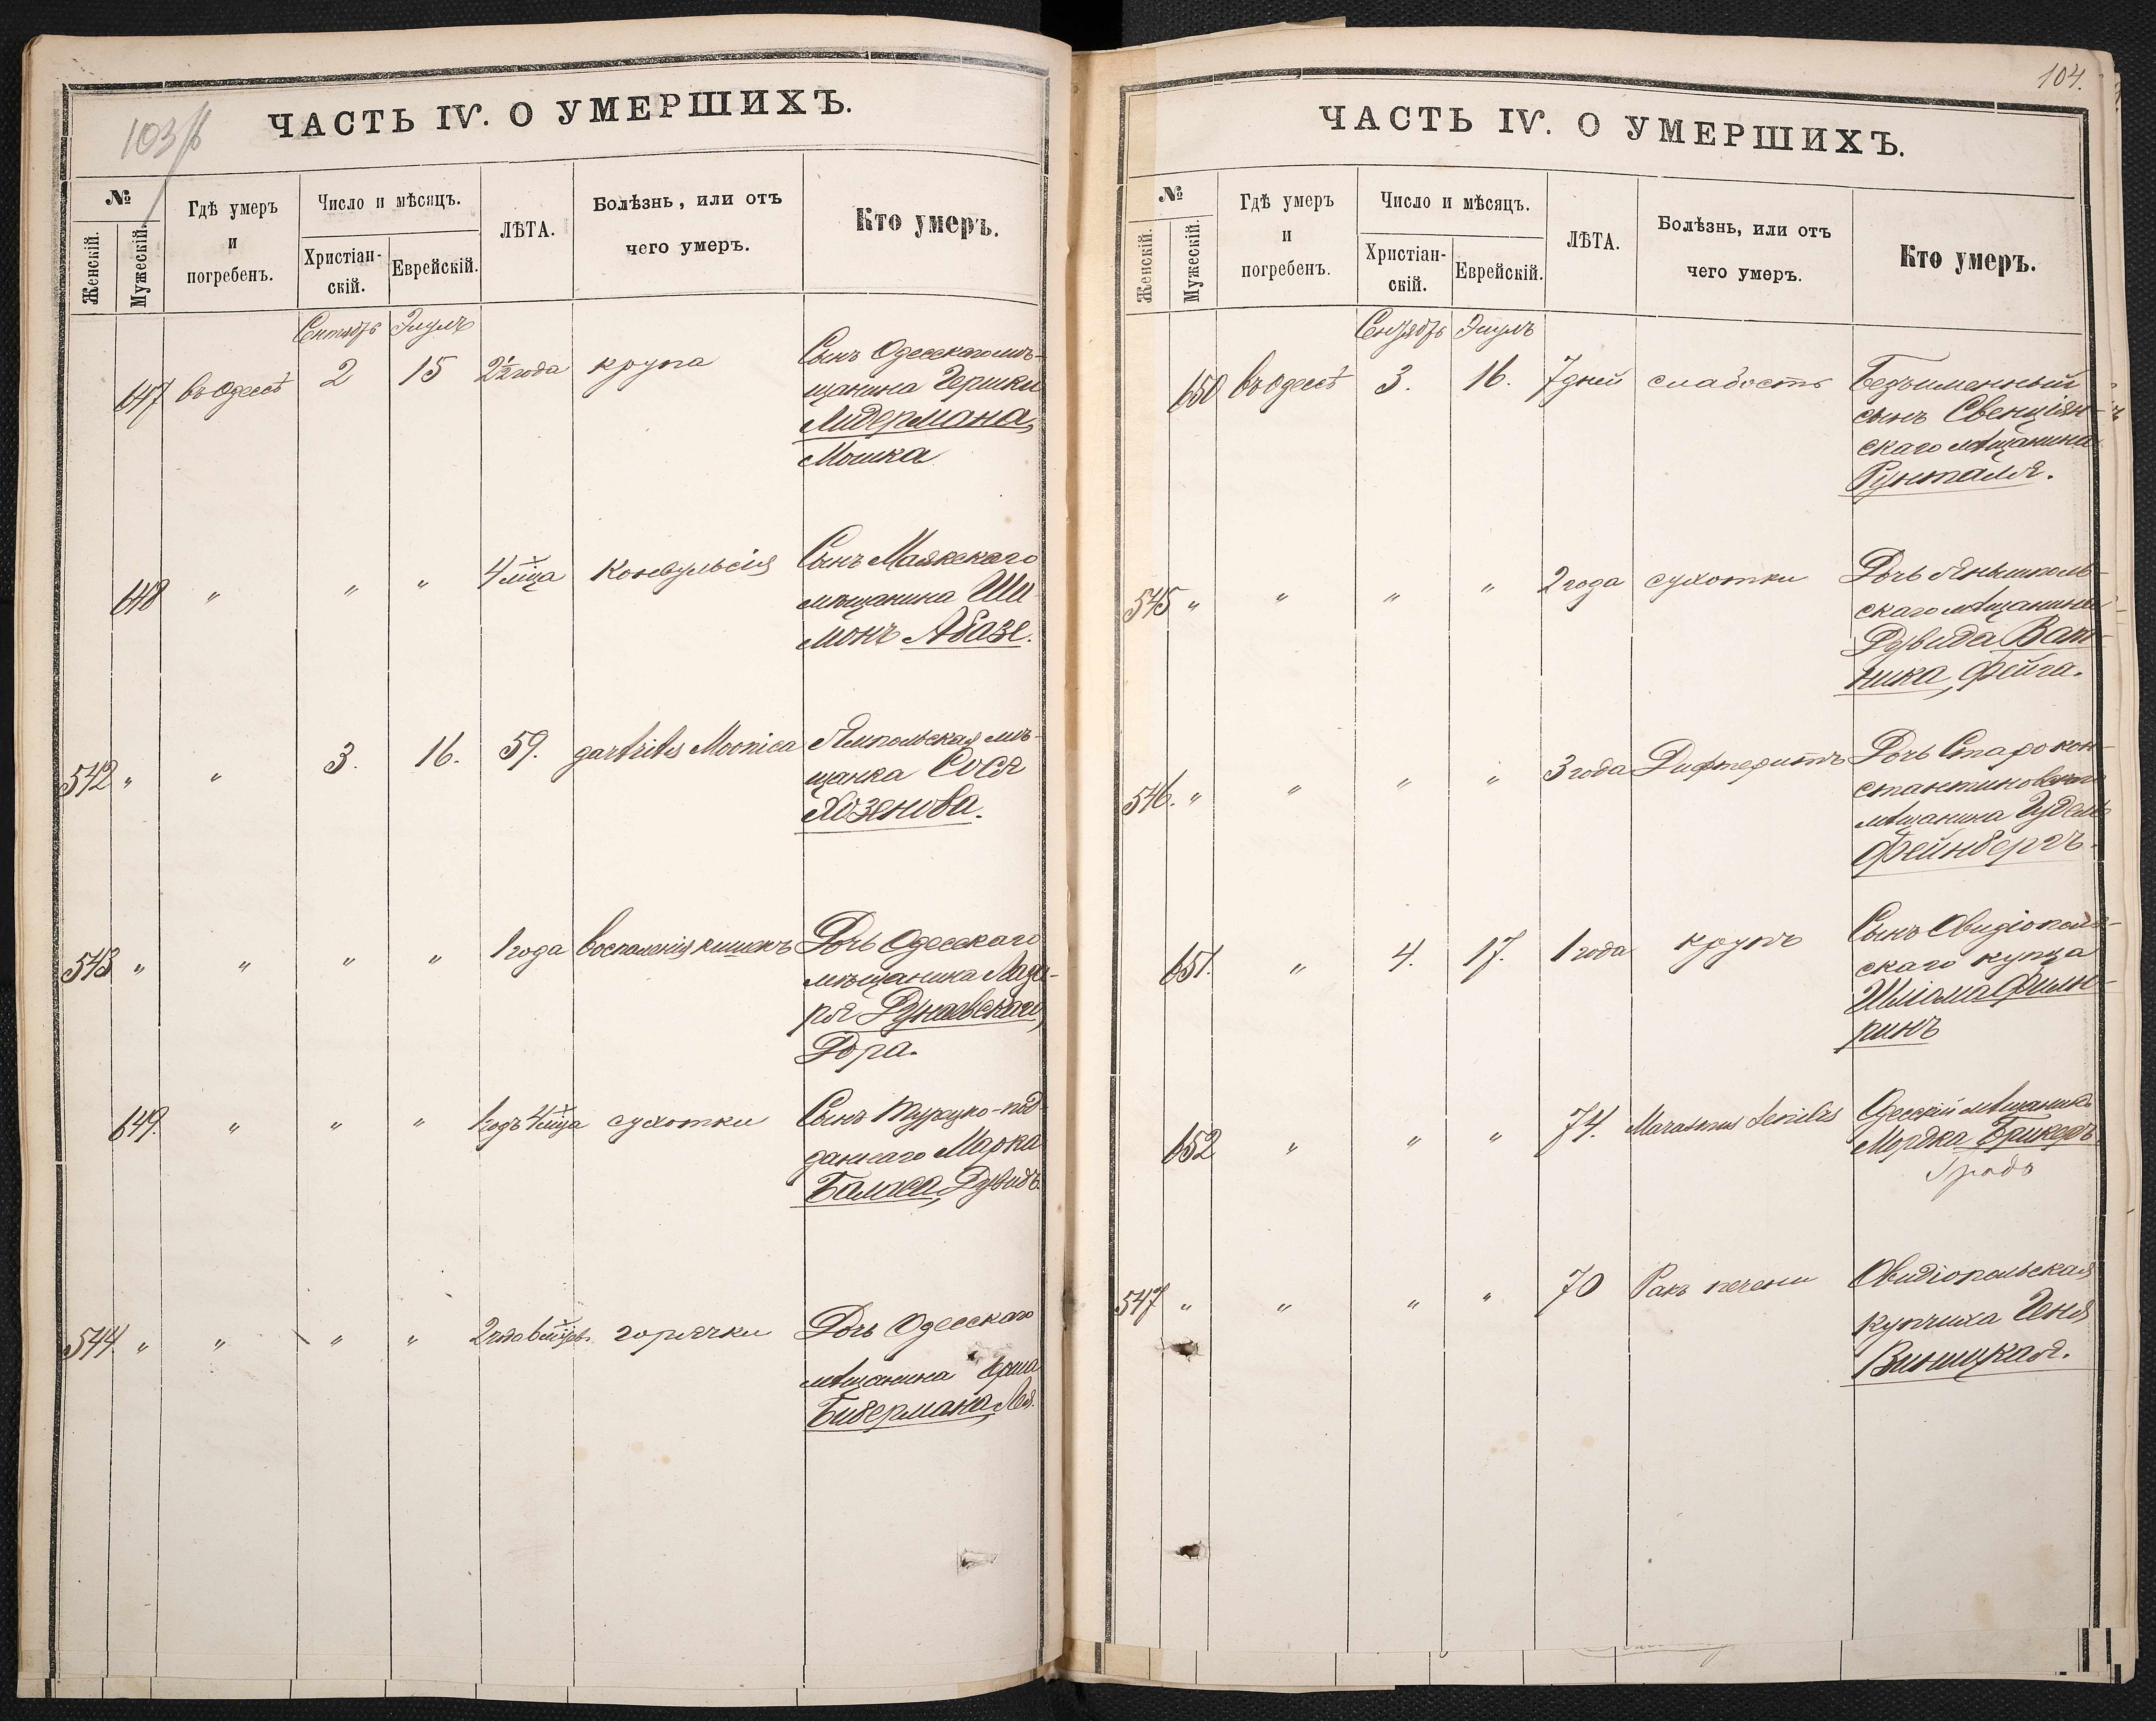 103 

ЧАСТЬ IV. О УМЕРШИХЪ.
№
Женскій.
Мужескій.
Гдѣ умеръ
и
погребенъ.
Число и мѣсяцъ.
Христіан-
скій.
Еврейскій.
ЛѢТА.
Болѣзнь, или отъ
чего умеръ.
Кто умеръ.
Сентябрь Элулъ
647 въ Одессѣ 2 15 2½ года крупа Сынъ Одесскаго мѣ-
щанина Гершки
Лидермана,
Мошка
648 " " " 4 мца Конвульсія Сынъ Маякскаго
мѣщанина Ши-
монъ Абазе.
542 " " 3. 16. 59. gastritis Ямпольская мѣ-
щанка Сося
Хозенова.
543 " " " " 1 года Воспаленія кишекъ Дочь Одесскаго
мѣщанина Лаза-
ря Дунаевскаго,
Дора.
649. " " " 1 годъ 4 мца сухотки Сынъ Турецко-под-
даннаго Марка
Баласа, Дувидъ.
544 " " " " 2 года 6 мцевъ горячки Дочь Одесскаго
мѣщанина Ерша
Бибермана, Лея.
104.
ЧАСТЬ IV. О УМЕРШИХЪ.
№
Женскій.
Мужескій.
Гдѣ умеръ
и
погребенъ.
Число и мѣсяцъ.
Христіан-
скій.
Еврейскій.
ЛѢТА.
Болѣзнь, или отъ
чего умеръ.
Кто умеръ.
Сентябрь Элулъ
650 въ Одессѣ 3. 16. 7 дней слабость Безъименный
сынъ Свенціян-
скаго мѣщанина
Рунталя.
545 " " " " 2 года сухотки Дочь
скаго мѣщанина
Дувида Ват-
ника, Фейга.
546. " " " " 3 года Дифтеритъ Дочь Старокон-
стантиновскаго
мѣщанина Гудель
Фейнбергъ.
651. " 4. 17. 1 года крупъ Сынъ Овидіополь-
скаго купца
Шліома Филю-
ринъ
652 " " " 74. Marasmus senilis Одесскій мѣщанинъ
Мордка Брикеръ
547 " " " " 70 Ракъ печени Овидіопольская
купчиха Геня
Виницкая.